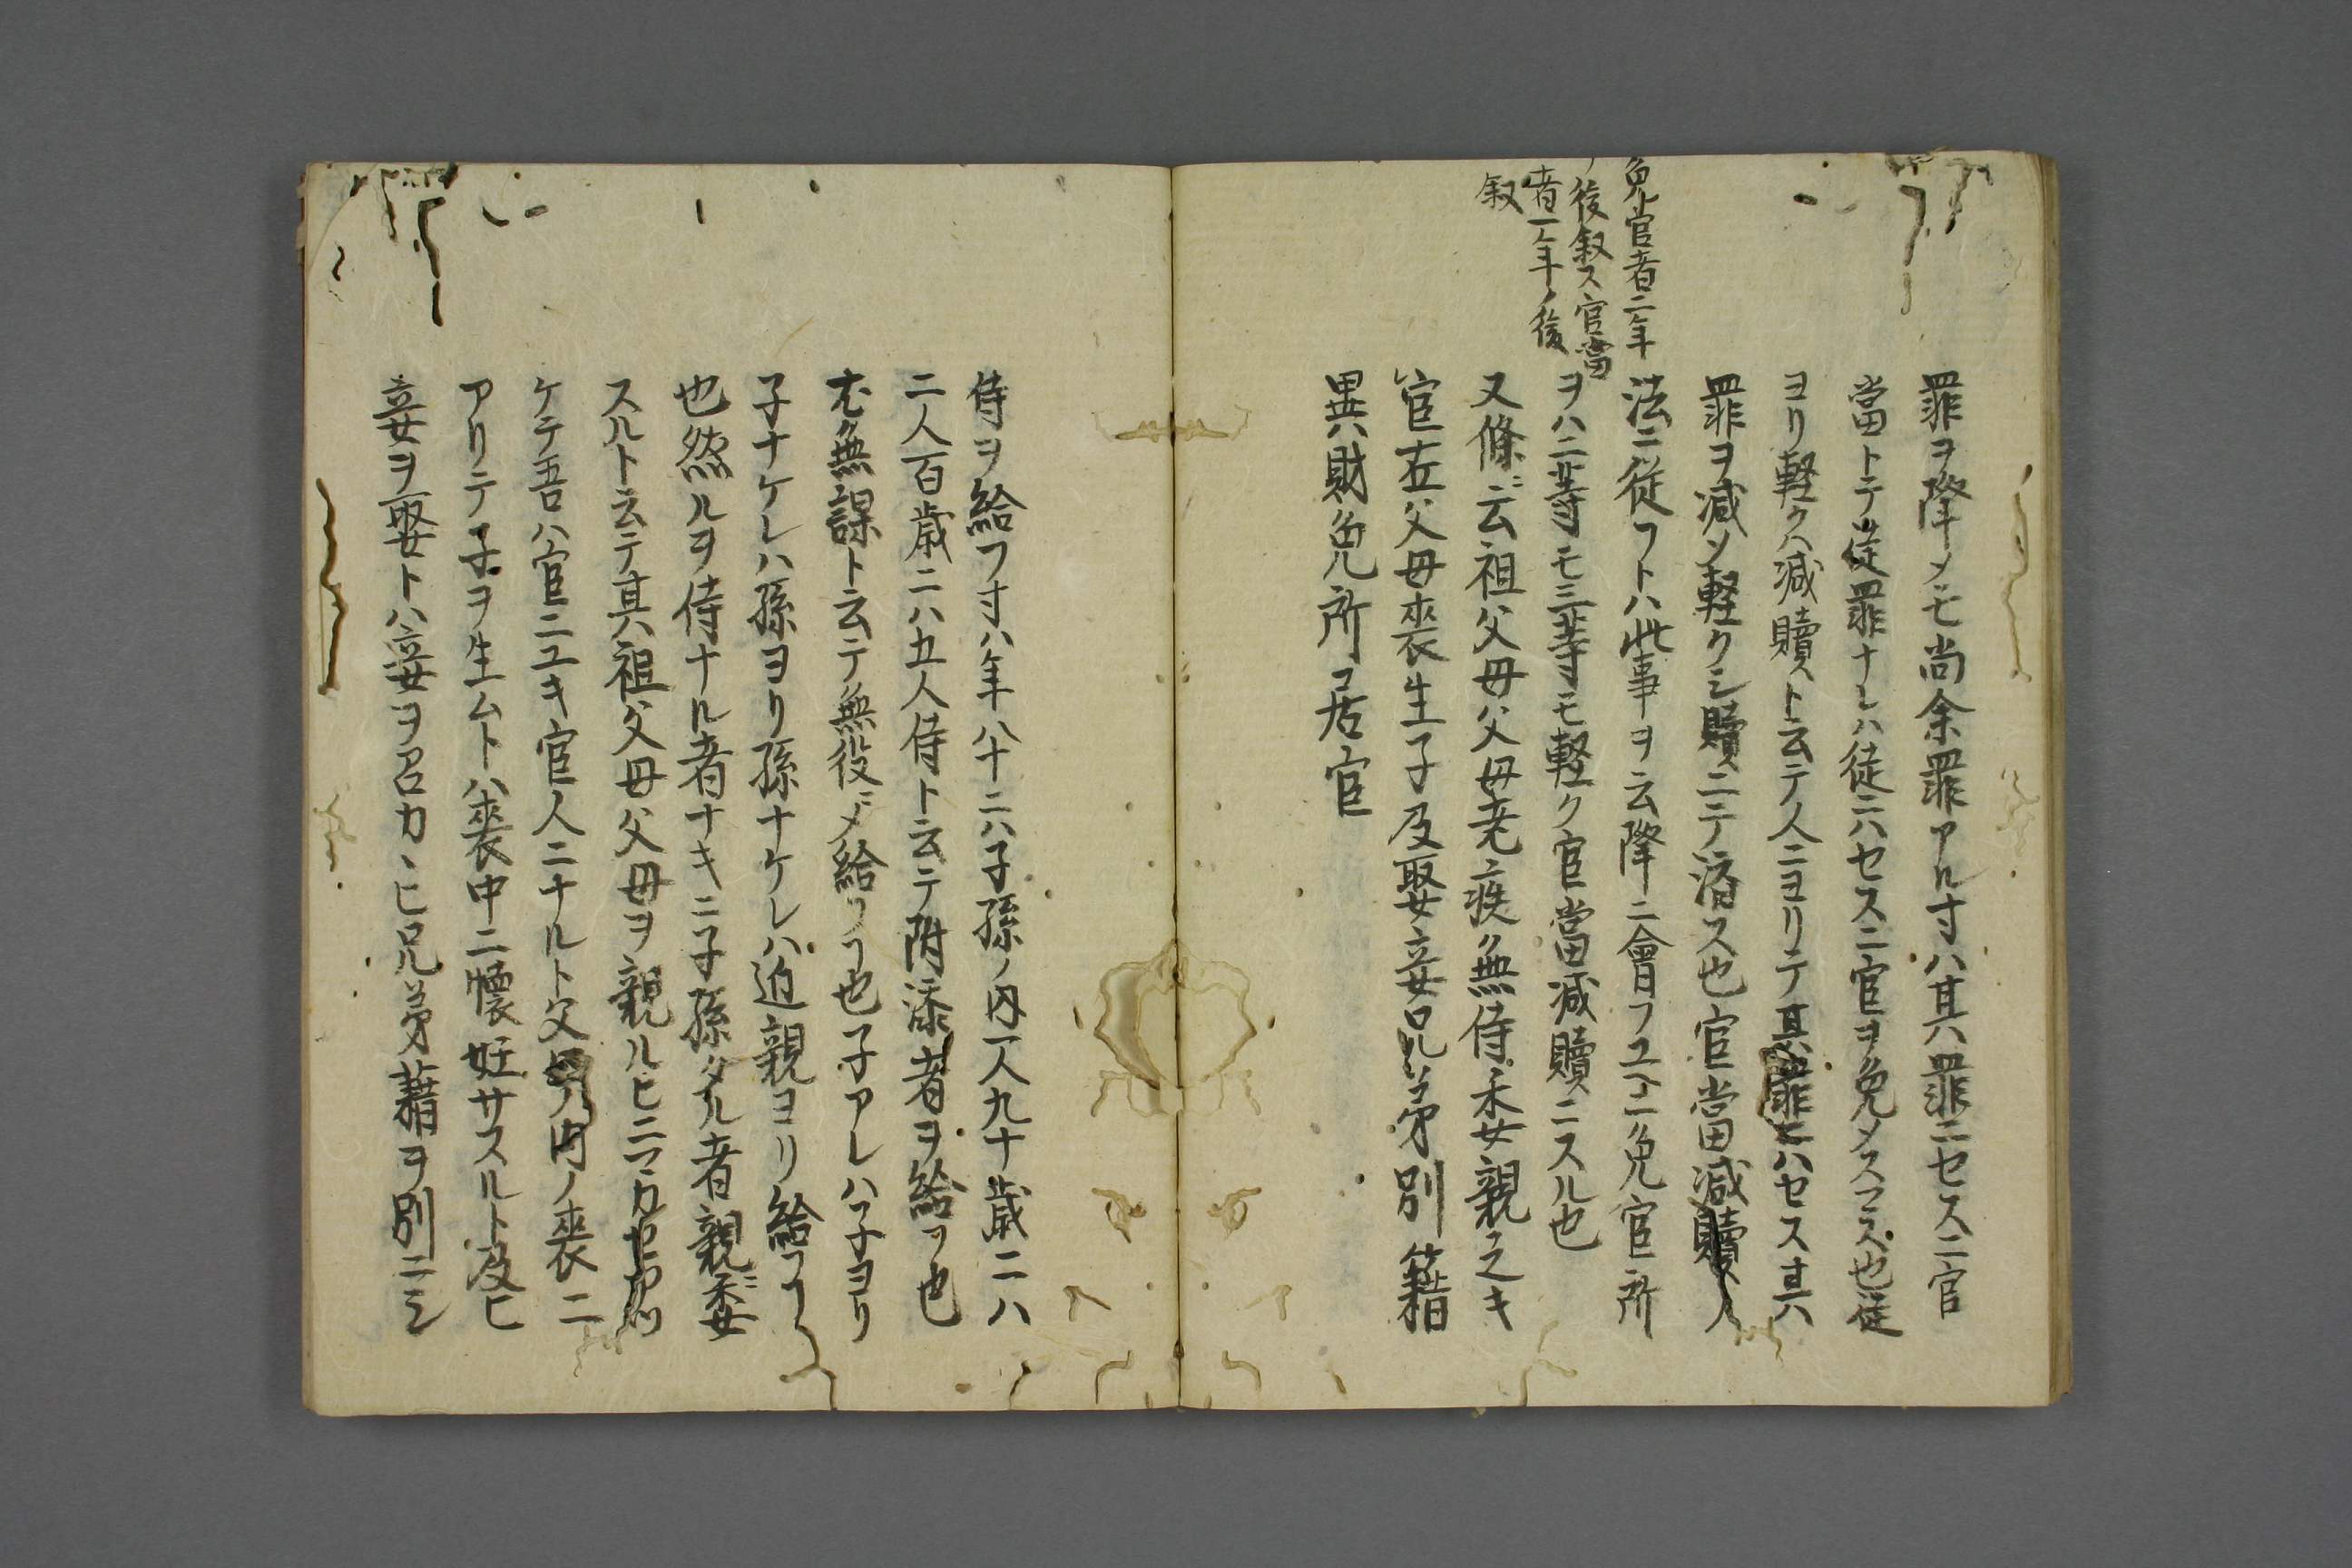 免官者二年
ノ後叙ス官當
者一年ノ後
叙
罪ヲ降メモ尚余罪アル寸ハ其罪ニセスニ官
當トテ徒罪ナレハ徒ニハセスニ官ヲ免メスマス也徒
ヨリ軽クハ減贖ト云テ人ニヨリテ其罪ニハセス其
罪ヲ減ソ軽クシ贖ニテ済ス也官當減贖人
法ニ従フトハ此事ヲ云降ニ會フユヱニ免官所
ヲハ二等モ三等モ軽ク官當減贖ニスル也
又條ニ云祖父母父母老疾無侍委親之キ
官在父母喪生子及娶妾兄弟別籍
異財免所居官
侍ヲ給フ寸ハ年八十ニハ子孫ノ内一人九十歳ニハ
二人百歳ニハ五人侍ト云テ附添者ヲ給フ也
无無謀ト云テ無役ニメ給フヿ也子アレハ子ヨリ
子ナケレハ孫ヨリ孫ナケレハ近親ヨリ給フヿ
也然ルヲ侍ナル者ナキニ子孫タル者親ニ委
スルト云テ其祖父母父母ヲ親ルヒニマカセ
ケテ吾ハ官ニユキ官人ニナルト父母ノ内ノ喪ニ
アリテ子ヲ生ムトハ喪中ニ懐妊サスルト及ヒ
妾ヲ娶トハ妾ヲ召カヽヒ兄弟籍ヲ別ニシ